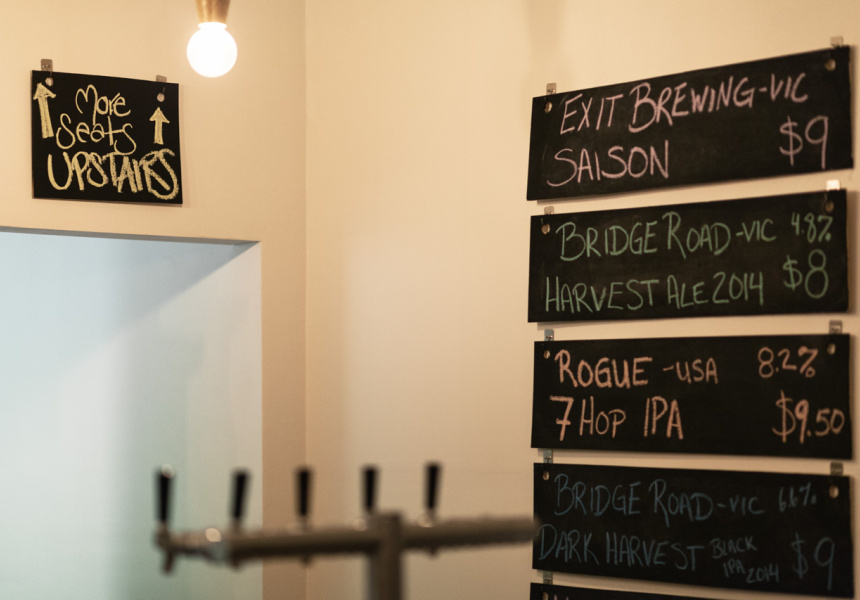 More
Seats
UPSTAIRS
EXIT BREWING-VIC
SAISON $9
BRIDGE ROAD-VIC 4.8%
HARVEST ALE 2014 $8
ROGUE -USA 8.2%
7 HOP IPA $9.50
BRIDGE ROAD-VIC 6.6%
DARK HARVEST BLACK IPA 2014 $9